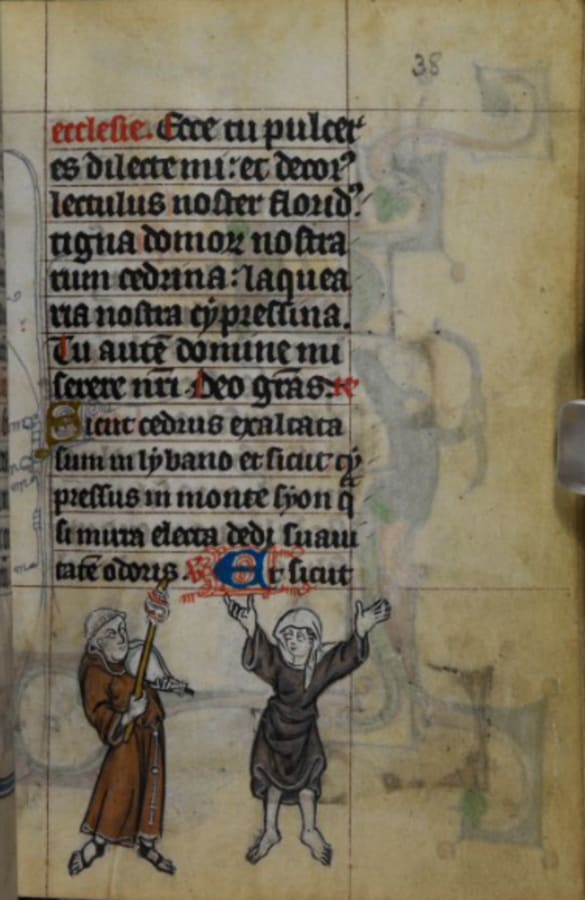 38
ecclesie. Ecce tu pulcer
es dilecte mi: et decorꝰ
lectulus noster floridꝰ.
tigna domoꝝ nostra
rum cedrina: laquea
ria nostra cypressina.
Tu autē domine mi
serere nr̄i. Deo gr̄as. re
Sicut cedrus exaltata
sum in lybano et sicut cy
pressus in monte syon q̄
si mirra electa dedi suaui
tatē odoris. ℟ Et sicut